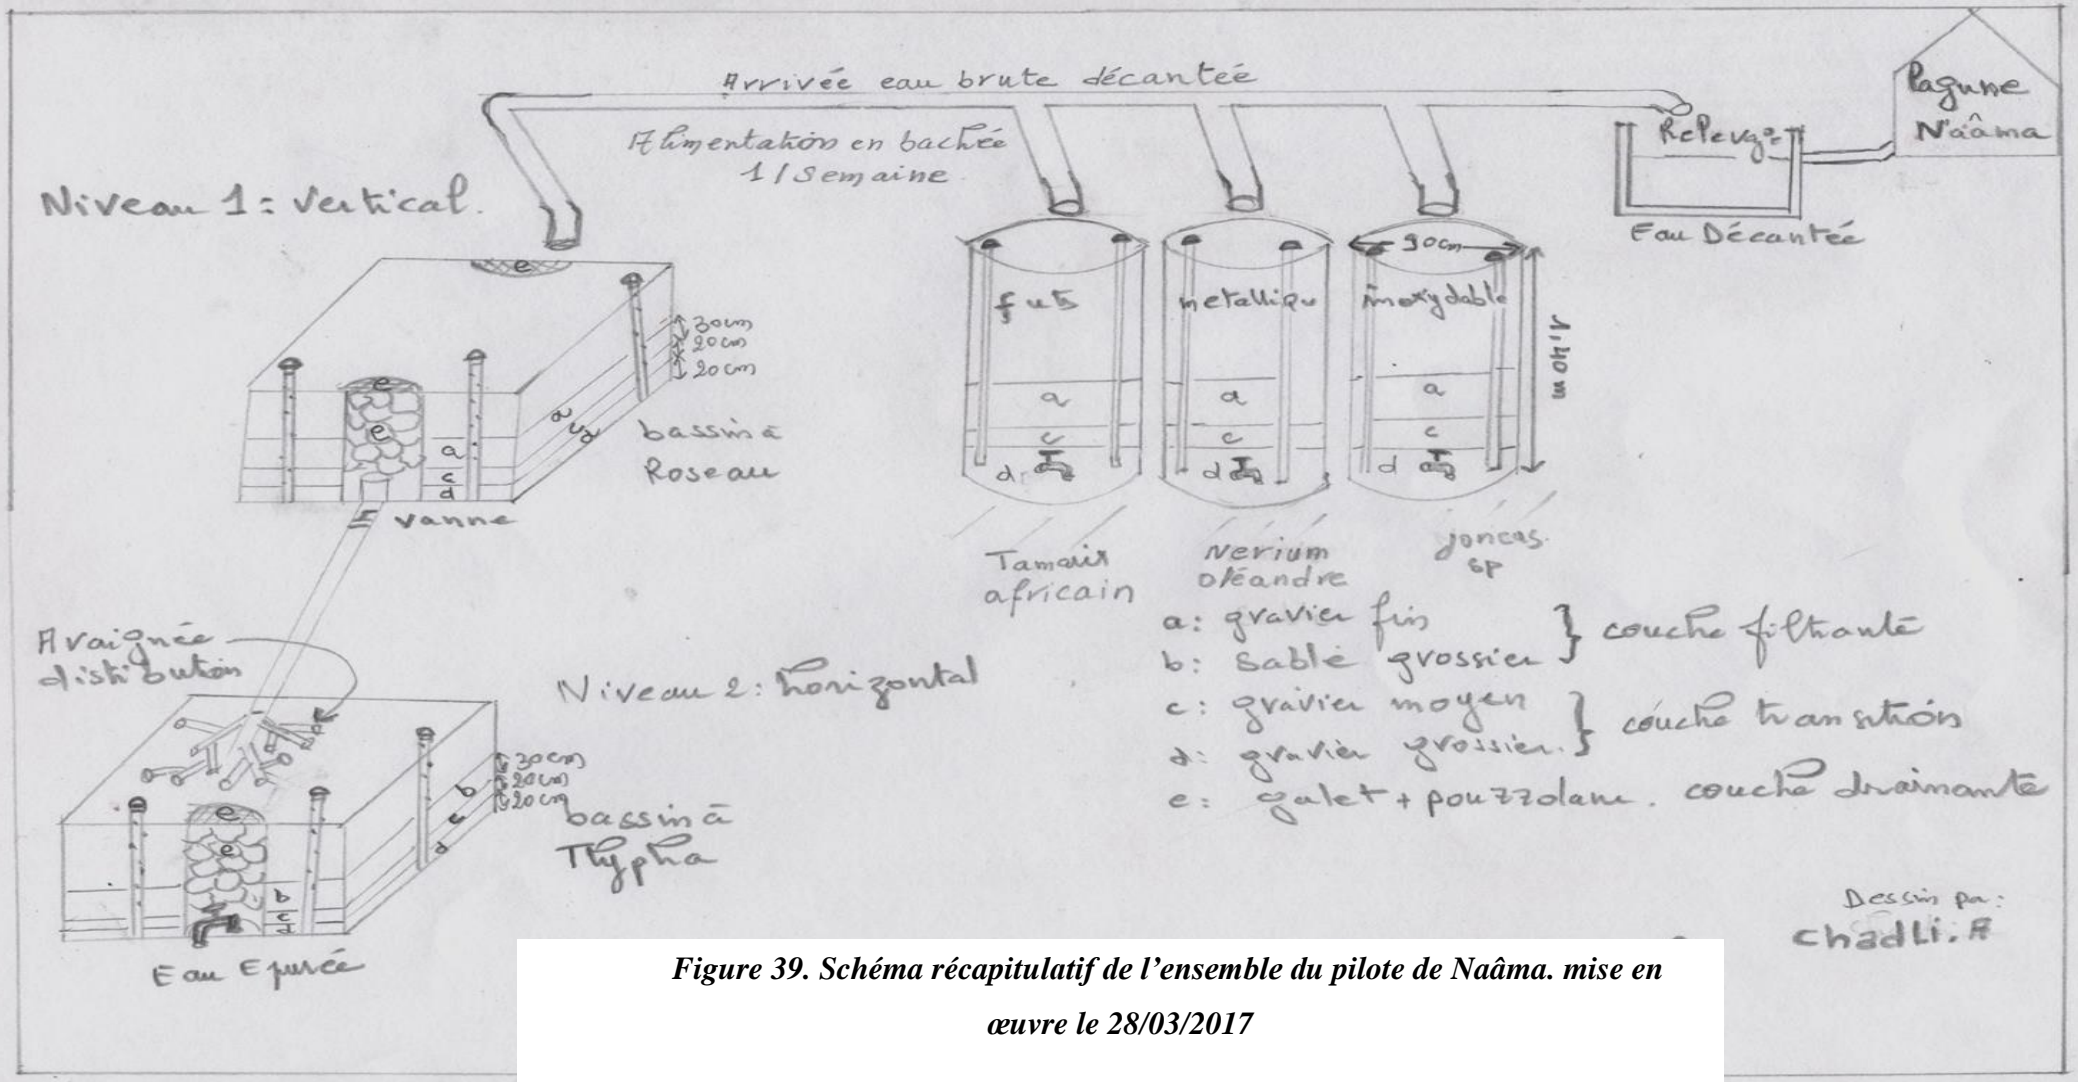 Arrivée eau brute décanteé
Alimentation en bachée
1/Semaine
Lagune
Naâma
Relevage
Eau Décantée
Niveau 1: Vertical.
e
30cm
20cm
20cm
e
e
a
c
d
a
c
d
bassin à
Roseau
vanne
futs
metalliqu
inoxydable
90cm
1,40m
a
c
d
a
c
d
a
c
d
Tamarix
africain
Nerium
oléandre
joncus.
sp
a: gravier fin
b: Sable grossier
couche filtrante
c: gravier moyen
d: gravier grossier.
couche transition
e: galet + pouzzolane. couche drainante
Araignée
distribution
Niveau 2: horizontal
30cm
20cm
20cm
b
c
d
e
e
b
c
d
bassin à
Thypha
Eau Epurée
Dessin pa:
chadLi.A
Figure 39. Schéma récapitulatif de l’ensemble du pilote de Naâma. mise en
œuvre le 28/03/2017